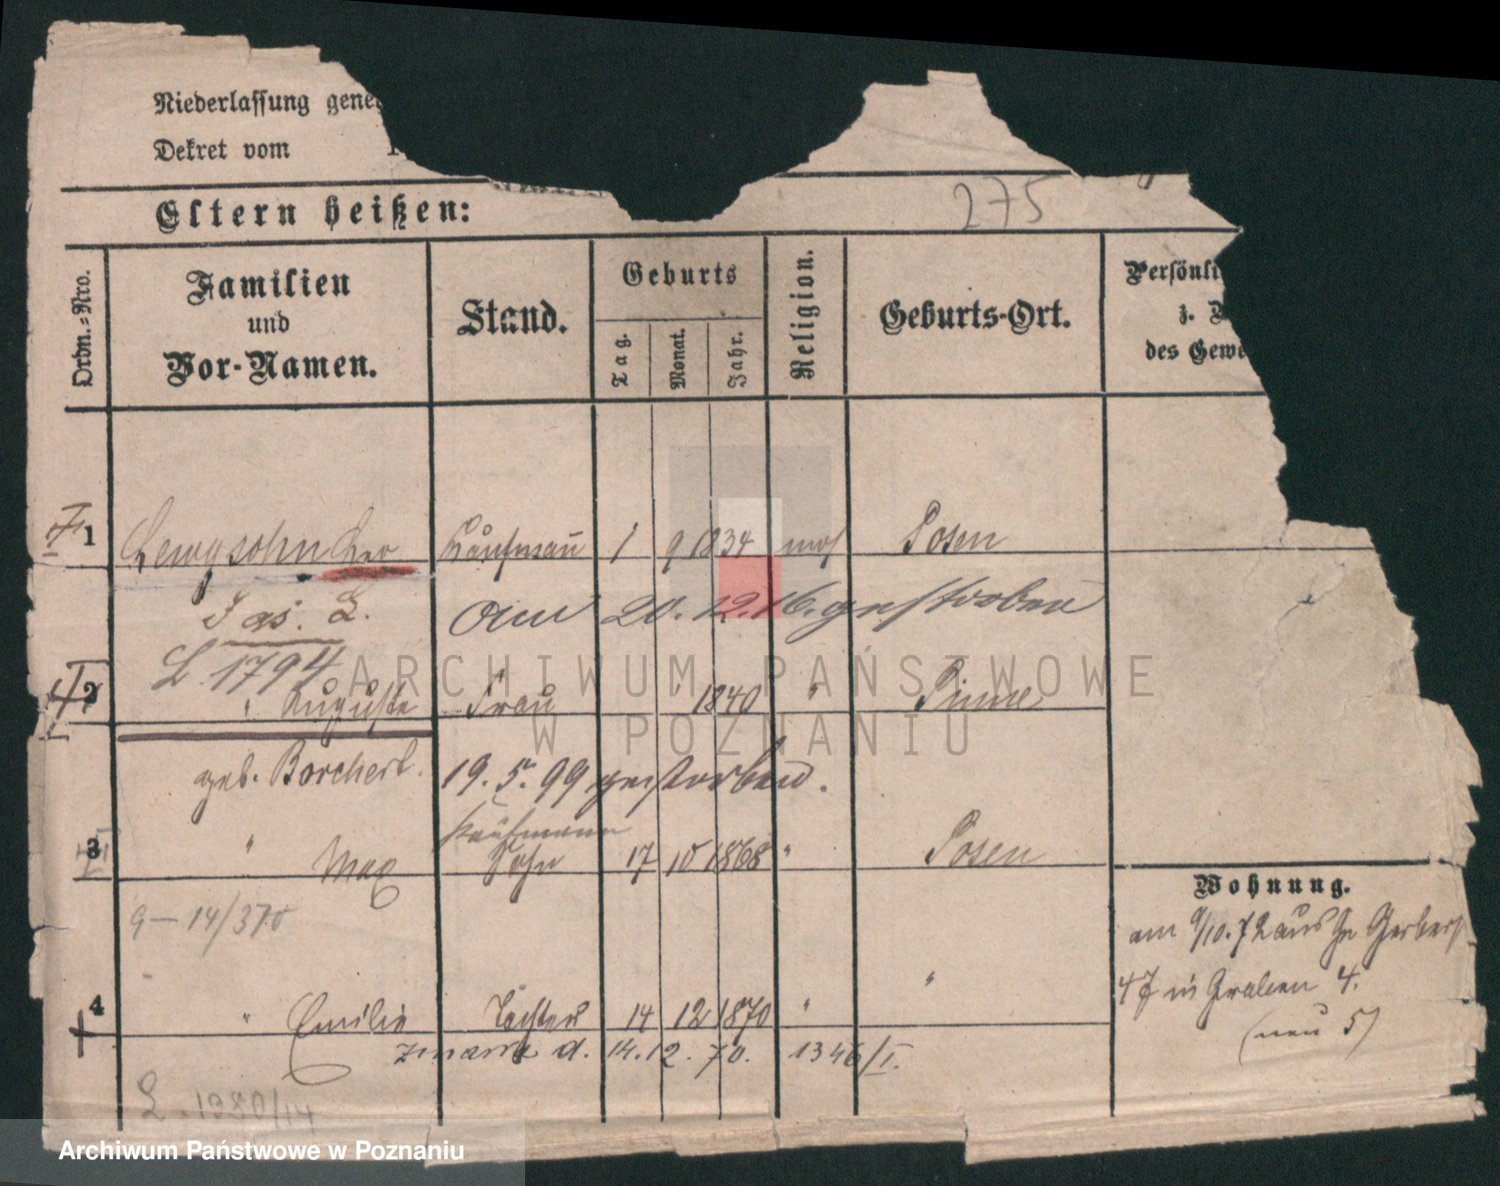 Niederlassung gene
Dekret vom 1
275
Eltern heißen:
Ordn.-Nro.
Familien
und
Vor-Namen.
Stand.
Geburts
Tag.
Monat.
Jahr.
Religion.
Geburts-Ort.
Persönli
z. Z
des Gewe
1 Lewysohn Leo Kaufmann 1 9 1834 mos Posen
Jas. L. am 20.12.16. gestorben
L. 1794
2 " Auguste Frau 1840 " Pinne
geb. Borchert. 19.5.99 gestorben.
Kaufmann
3 " Max Sohn 17 10 1868 " Posen
Wohnung.
9-14/370
am 9/10.72 aus Gerberst
47 in Graben 4.
(neu 5)
4 " Emilie Tochter 14 12 1870 " "
zmarła d. 14.12.70. 1346/I.
L. 1380/14
ARCHIWUM PAŃSTWOWE
W POZNANIU
Archiwum Państwowe w Poznaniu